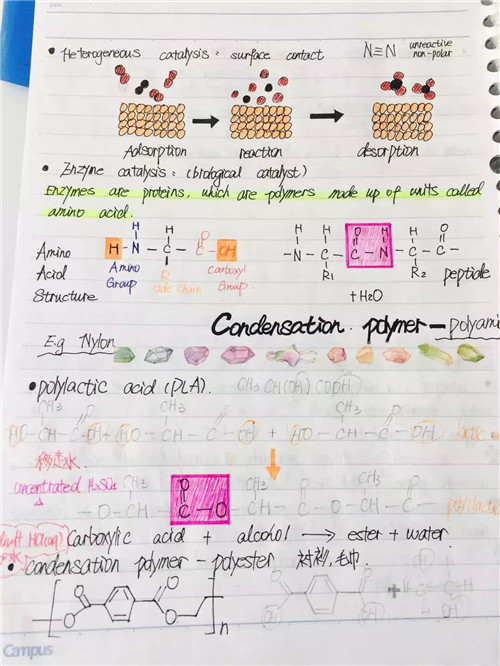 • Heterogeneous catalysis: surface contact N≡N unreactive
non-polar
Adsorption reaction desorption
• Enzyme catalysis: (biological catalyst)
Enzymes are proteins, which are polymers made up of units called
amino acid.
Amino
Acid
Structure
H - N - C - C - OH
H
O
R side chain
Amino
Group
Carboxyl
Group.
- N - C - C - N - C - C -
H H O H H O
R1 R2 peptide
+ H2O
Condensation polymer - polyamid
E.g Nylon
• polylactic acid (PLA). CH3 CH(OH) COOH
CH3 CH3 CH3
HO - CH - C - OH + HO - CH - C - OH + HO - CH - C - OH lactic
concentrated H2SO4
O
C - O
CH3
CH - C - O - CH - C - O
Carboxylic acid + alcohol → ester + water.
HCl(aq)
• condensation polymer - polyester 衬衫, 毛巾.
O O O O n
+
OH
Campus